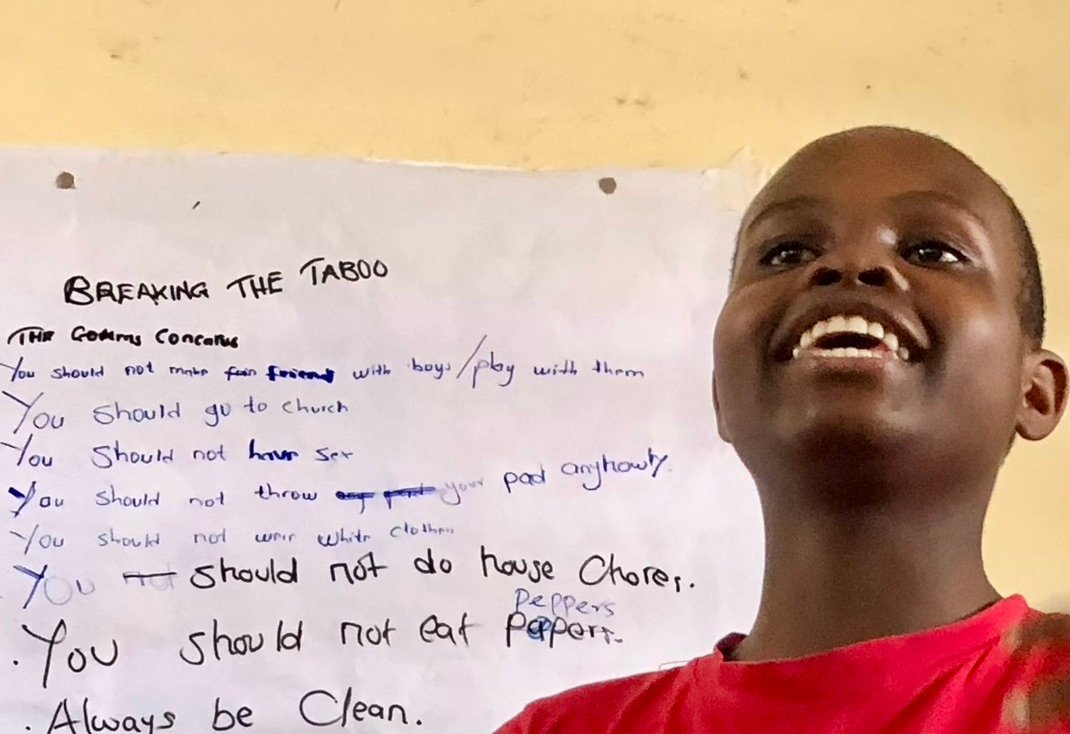 BREAKING THE TABOO
THE Comms Concerns
You should not make fun friend with boys/play with them
You should go to church
You should not have sex
You should not throw your pad anyhowly.
You should not wear white clothes
You not should not do house Chores.
Peppers
. You should not eat Peppers.
. Always be Clean.